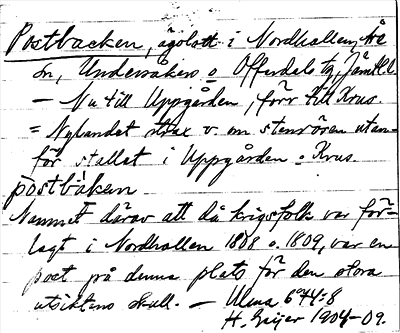 Postbacken, ägolott i Nordhallen, Åre
sn, Undersåkers o Offerdals tg, Jämtl. l.
— Nu till Uppgården, förr till Krus.
= Nylandet strax v. om stenrören utan-
för stallet i Uppgården o Krus.
postbàken
Namnet därav att då krigsfolk var för-
lagt i Nordhallen 1808 o. 1809, var en
post på denna plats för den stora
utsiktens skull. — Ulma 6 44:8
H. Geijer 1904-09.